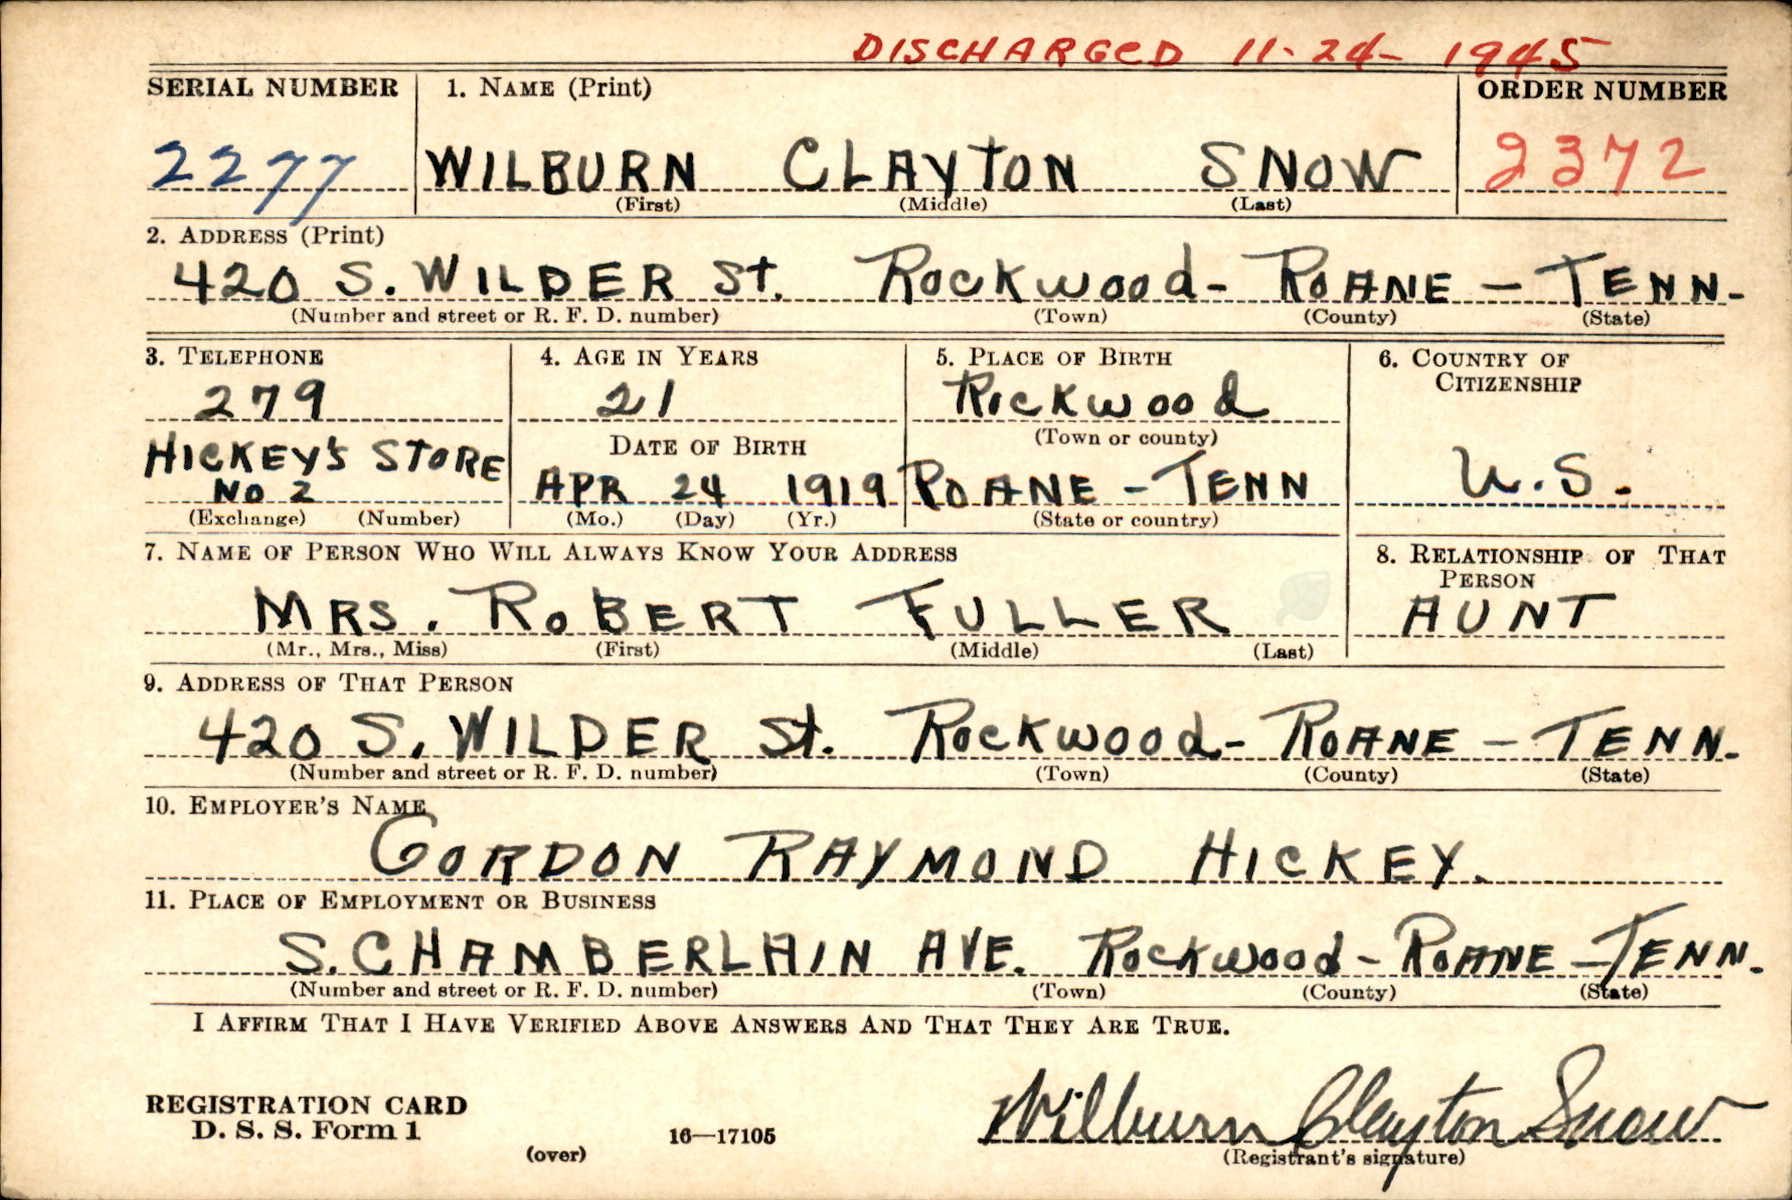 DISCHARGED 11-24-1945
SERIAL NUMBER 1. NAME (Print) ORDER NUMBER
2277 WILBURN CLAYTON SNOW 2372
(First) (Middle) (Last)
2. ADDRESS (Print)
420 S. WILDER St. Rockwood - ROANE - TENN.
(Number and street or R. F. D. number) (Town) (County) (State)
3. TELEPHONE 4. AGE IN YEARS 5. PLACE OF BIRTH 6. COUNTRY OF
CITIZENSHIP
279 21 Rockwood
(Town or county)
HICKEY'S STORE DATE OF BIRTH
No 2 APR 24 1919 ROANE - TENN U.S.
(Exchange) (Number) (Mo.) (Day) (Yr.) (State or country)
7. NAME OF PERSON WHO WILL ALWAYS KNOW YOUR ADDRESS 8. RELATIONSHIP OF THAT
PERSON
MRS. ROBERT FULLER AUNT
(Mr., Mrs., Miss) (First) (Middle) (Last)
9. ADDRESS OF THAT PERSON
420 S. WILDER St. Rockwood - ROANE - TENN.
(Number and street or R. F. D. number) (Town) (County) (State)
10. EMPLOYER'S NAME
GORDON RAYMOND HICKEY.
11. PLACE OF EMPLOYMENT OR BUSINESS
S. CHAMBERLAIN AVE. Rockwood - ROANE - TENN.
(Number and street or R. F. D. number) (Town) (County) (State)
I AFFIRM THAT I HAVE VERIFIED ABOVE ANSWERS AND THAT THEY ARE TRUE.
REGISTRATION CARD
D. S. S. Form 1 16—17105 Wilburn Clayton Snow
(over) (Registrant's signature)